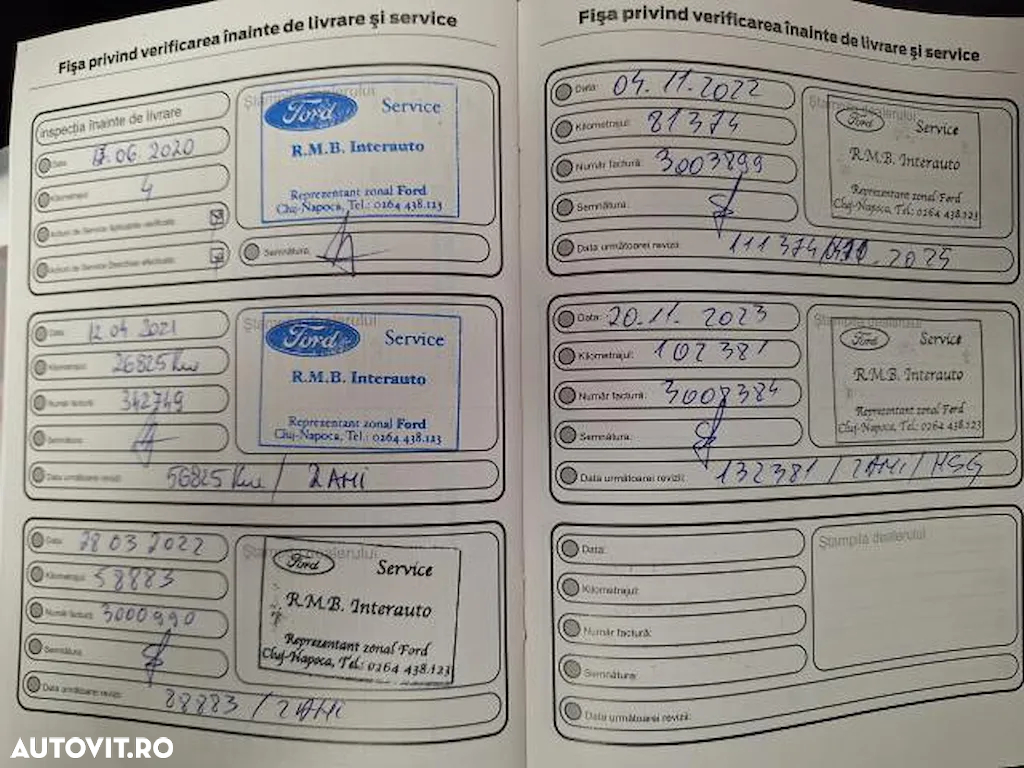 Fişa privind verificarea înainte de livrare şi service
inspecţia înainte de livrare
Data: 17.06.2020
Kilometrajul: 4
Acţiuni de Service aplicabile verificate
Acţiuni de Service Deschise efectuate
Ştampila dealerului
Ford Service
R.M.B. Interauto
Reprezentant zonal Ford
Cluj-Napoca, Tel.: 0264 438.123
Semnătura:
Data: 12 04 2021
Kilometrajul: 26825 km
Număr factură: 342749
Semnătura:
Data următoarei revizii: 56825 km / 2 ANI
Ştampila dealerului
Ford Service
R.M.B. Interauto
Reprezentant zonal Ford
Cluj-Napoca, Tel.: 0264 438.123
Data: 28 03 2022
Kilometrajul: 58883
Număr factură: 3000990
Semnătura:
Data următoarei revizii: 88883 / 2 ANI
Ştampila dealerului
Ford Service
R.M.B. Interauto
Reprezentant zonal Ford
Cluj-Napoca, Tel.: 0264 438.123
Fişa privind verificarea înainte de livrare şi service
Data: 04.11.2022
Kilometrajul: 81374
Număr factură: 3003899
Semnătura:
Data următoarei revizii: 111374 / 2025
Ştampila dealerului
Ford Service
R.M.B. Interauto
Reprezentant zonal Ford
Cluj-Napoca, Tel.: 0264 438.123
Data: 20.11. 2023
Kilometrajul: 102381
Număr factură: 3008384
Semnătura:
Data următoarei revizii: 132381 / 2 ANI /
Ştampila dealerului
Ford Service
R.M.B. Interauto
Reprezentant zonal Ford
Cluj-Napoca, Tel.: 0264 438.123
Data:
Kilometrajul:
Număr factură:
Semnătura:
Data următoarei revizii:
Ştampila dealerului
AUTOVIT.RO